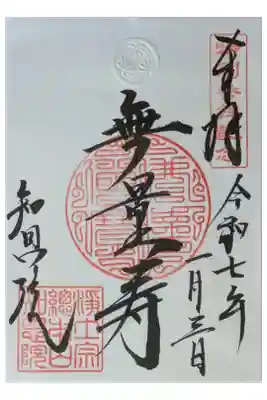 奉拝
令和七年
一月三日
無量寿
知恩院
浄土宗
總本山
知恩院